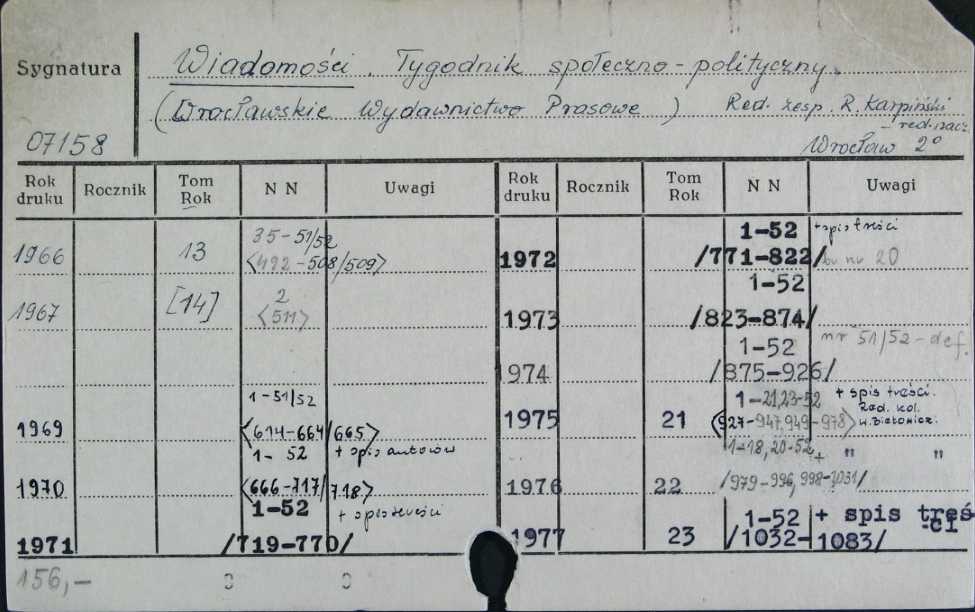 Sygnatura
Wiadomości. Tygodnik społeczno-polityczny.
(Wrocławskie Wydawnictwo Prasowe) Red. zesp. R. Karpiński
- red. nacz
07158 Wrocław 2°
Rok druku Rocznik Tom Rok NN Uwagi Rok druku Rocznik Tom Rok NN Uwagi
1966 13 35-51/52
<492-508/509>
1967 [14] 2
<511>
1969 1-51/52
<614-664/665>
+ spis autorów
1970 1-52
<666-717/718>
1971 1-52 + spis treści
/719-770/
1972 1-52 + spis treści
/771-822/ nr 20
1973 1-52
/823-874/
1974 1-52 nr 51/52-def.
/875-926/
1975 21 1-21,23-52 + spis treści.
<927-947,949-978> Red. kol.
1976 22 1-18,20-52 + " "
/979-996,998-1031/
1977 23 1-52 + spis treści
/1032-1083/
156,-